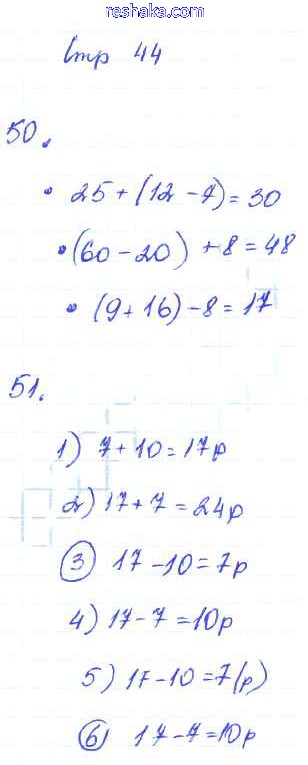 reshaka.com
Стр 44
50.
• 25 + (12 - 7) = 30
• (60 - 20) + 8 = 48
• (9 + 16) - 8 = 17
51.
1) 7 + 10 = 17р
2) 17 + 7 = 24р
3 17 - 10 = 7р
4) 17 - 7 = 10р
5) 17 - 10 = 7(р)
6 17 - 7 = 10р